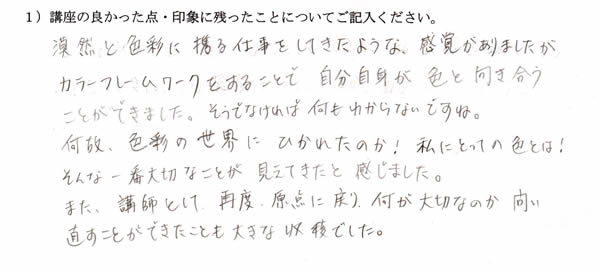 1）講座の良かった点・印象に残ったことについてご記入ください。
漠然と色彩に携る仕事をしてきたような、感覚がありましたが
カラーフレームワークをすることで 自分自身が 色と向き合う
ことができました。そうでなければ何もわからないですね。
何故、色彩の世界に ひかれたのか！ 私にとっての色とは！
そんな一番大切なことが 見えてきたと 感じました。
また、講師として 再度、原点に戻り 何が大切なのか 向い
直すことができたことも大きな収穫でした。